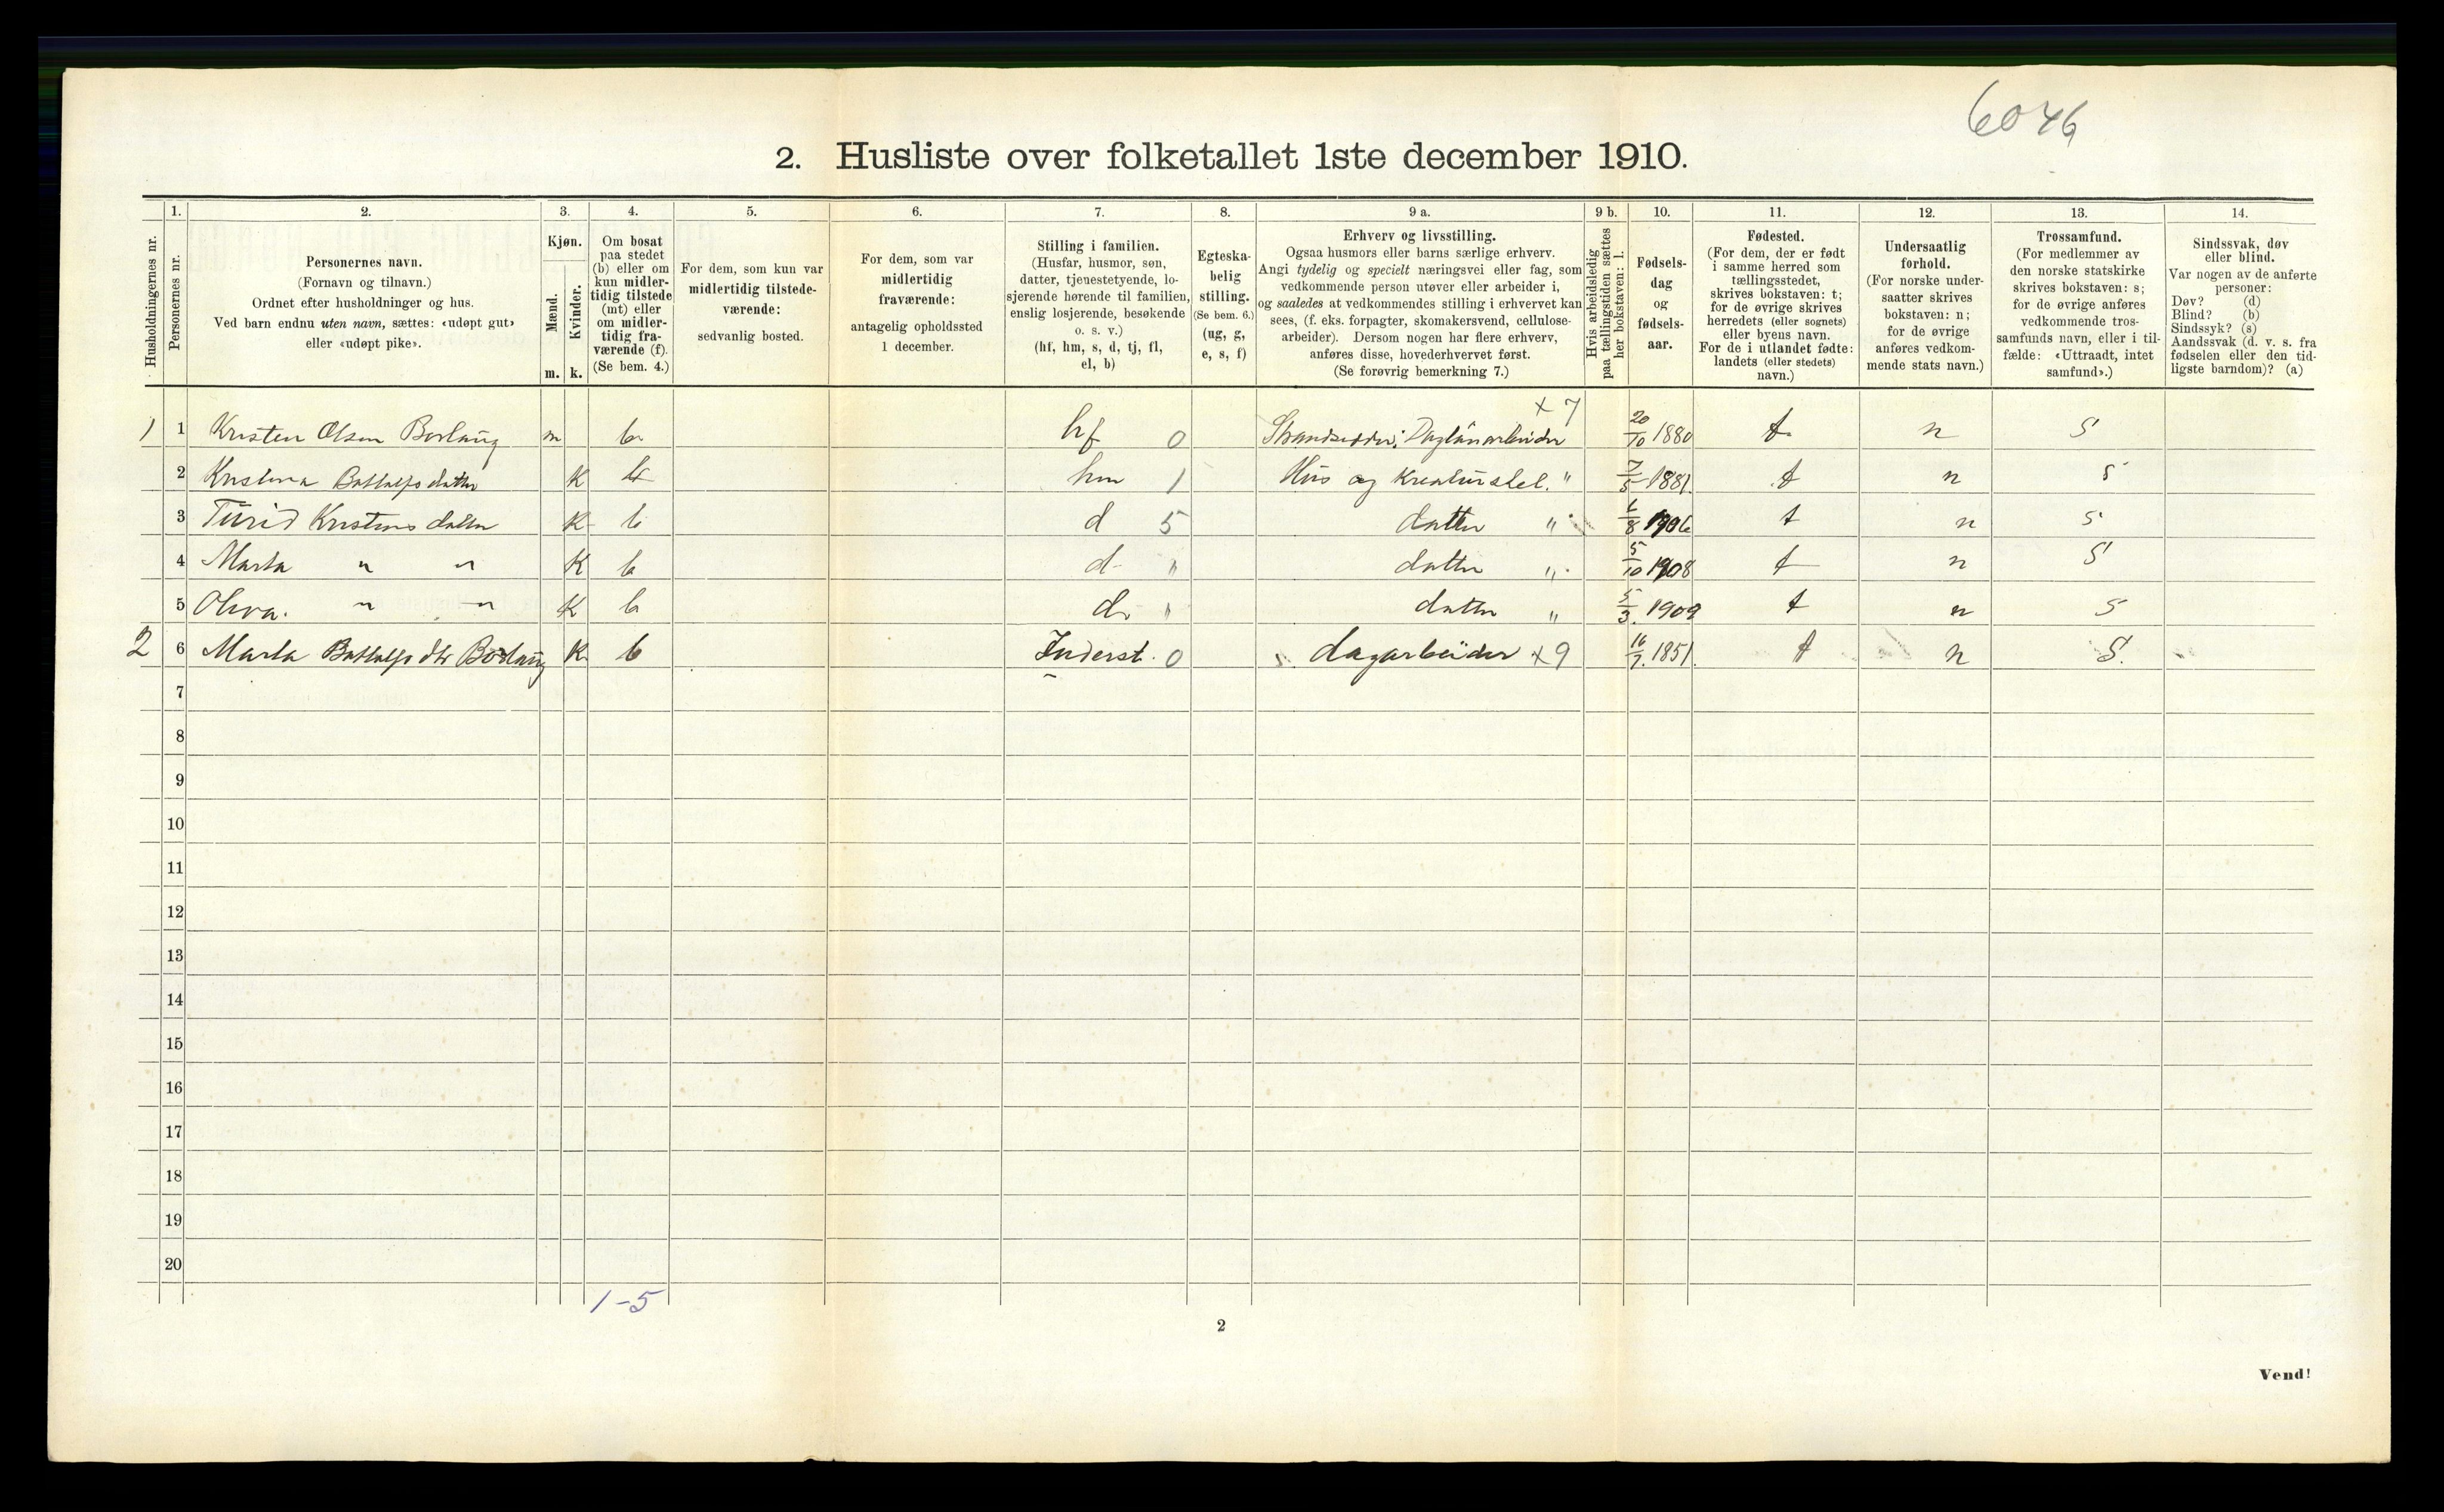 6046
2. Husliste over folketallet 1ste december 1910.
Husholdningernes nr.
1.
Personernes nr.
2.
Personernes navn.
(Fornavn og tilnavn.)
Ordnet efter husholdninger og hus.
Ved barn endnu uten navn, sættes: «udøpt gut»
eller «udøpt pike».
3.
Kjøn.
Mænd.
Kvinder.
m. k.
4.
Om bosat
paa stedet
(b) eller om
kun midler-
tidig tilstede
(mt) eller
om midler-
tidig fra-
værende (f).
(Se bem. 4.)
5.
For dem, som kun var
midlertidig tilstede-
værende:
sedvanlig bosted.
6.
For dem, som var
midlertidig
fraværende:
antagelig opholdssted
1 december.
7.
Stilling i familien.
(Husfar, husmor, søn,
datter, tjenestetyende, lo-
sjerende hørende til familien,
enslig losjerende, besøkende
o. s. v.)
(hf, hm, s, d, tj, fl,
el, b)
8.
Egteska-
belig
stilling.
(Se bem. 6.)
(ug, g,
e, s, f)
9 a.
Erhverv og livsstilling.
Ogsaa husmors eller barns særlige erhverv.
Angi tydelig og specielt næringsvei eller fag, som
vedkommende person utøver eller arbeider i,
og saaledes at vedkommendes stilling i erhvervet kan
sees, (f. eks. forpagter, skomakersvend, cellulose-
arbeider). Dersom nogen har flere erhverv,
anføres disse, hovederhvervet først.
(Se forøvrig bemerkning 7.)
9 b.
Hvis arbeidsledig
paa tællingstiden sættes
her bokstaven: l.
10.
Fødsels-
dag
og
fødsels-
aar.
11.
Fødested.
(For dem, der er født
i samme herred som
tællingsstedet,
skrives bokstaven: t;
for de øvrige skrives
herredets (eller sognets)
eller byens navn.
For de i utlandet fødte:
landets (eller stedets)
navn.)
12.
Undersaatlig
forhold.
(For norske under-
saatter skrives
bokstaven: n;
for de øvrige
anføres vedkom-
mende stats navn.)
13.
Trossamfund.
(For medlemmer av
den norske statskirke
skrives bokstaven: s;
for de øvrige anføres
vedkommende tros-
samfunds navn, eller i til-
fælde: «Uttraadt, intet
samfund».)
14.
Sindssvak, døv
eller blind.
Var nogen av de anførte
personer:
Døv? (d)
Blind? (b)
Sindssyk? (s)
Aandssvak (d. v. s. fra
fødselen eller den tid-
ligste barndom)? (a)
x 7
1 1 Kristen Olsen Borlaug m b hf 0 Strandsidder; Daglönarbeider 20/10 1880 t. n S
2 Kristina Bottolfsdatter K b hm 1 Hus og Kreaturstel. " 7/5 1881. t n S
3 Turid Kristensdatter K b d 5 datter " 6/8 1906 t n S
4 Marta " " K b d " datter " 5/10 1908 t n S
5 Oliva. " " K b d. " datter " 5/3. 1909 t n S
2 6 Marta Bottolfsdtr Borlaug K b Inderst. 0 dagarbeider x9 16/7. 1851. t n S.
7
8
9
10
11
12
13
14
15
16
17
18
19
20
1-5
2
Vend!